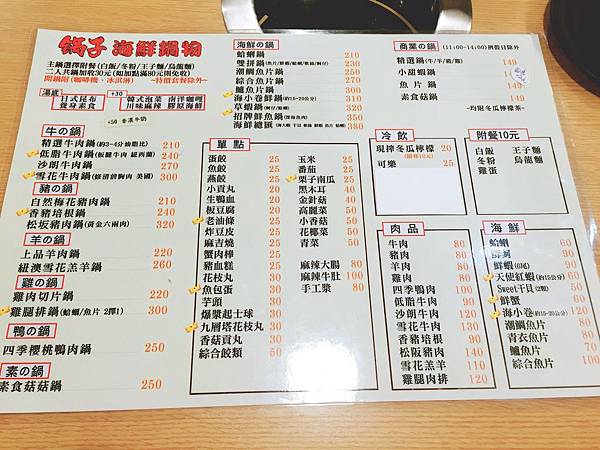 鍋子 海鮮鍋物
主鍋選擇附餐(白飯/冬粉/王子麵/烏龍麵)
二人共鍋加收30元(如加點滿80元則免收)
開鍋限(咖啡機、冰淇淋) ~特價套餐除外~
湯底
日式昆布
養身素食
+30
韓式泡菜 南洋咖哩
川味麻辣 膠原海鮮
+50 香濃牛奶
牛の鍋
精選牛肉鍋(約3~4分油脂比) 210
低脂牛肉鍋(板腱牛肉 紐西蘭) 240
沙朗牛肉鍋 270
雪花牛肉鍋(雞清前胸肉 美國) 300
豬の鍋
自然梅花豬肉鍋 210
香豬培根鍋 240
松坂豬肉鍋(黃金六兩肉) 320
羊の鍋
上品羊肉鍋 220
紐澳雪花羔羊鍋 260
雞の鍋
雞肉切片鍋 220
雞腿排鍋(蛤蜊/魚片 2擇1) 300
鴨の鍋
四季櫻桃鴨肉鍋 250
素の鍋
素食菇菇鍋 250
海鮮の鍋
蛤蜊鍋 210
雙拼鍋
潮鯛魚片鍋 230
綜合魚片鍋 240
鱸魚片鍋 300
海小卷鮮鍋(約15~20公分) 310
草蝦鍋 320
招牌鮮魚鍋 350
海鮮總匯 380
商業の鍋 (11:00~14:00)例假日除外
精選鍋(牛/羊/豬/雞) 149
小甜蝦鍋
魚片鍋 149
素食菇鍋 149
~均附冬瓜檸檬茶~
單點
蛋餃 25
魚餃 25
燕餃 25
小貢丸 25
生鴨血 20
板豆腐 20
老油條 25
炸豆皮 25
麻吉燒 25
蟹肉棒 25
豬血糕 25
花枝丸 30
魚包蛋 30
芋頭 30
爆漿起士球 30
九層塔花枝丸 30
香菇貢丸 30
綜合餃類 50
玉米 25
番茄 25
栗子南瓜 35
黑木耳 40
金針菇 40
高麗菜 50
小香菇 50
花椰菜 50
青菜 50
麻辣大腸 80
麻辣牛肚 100
手工漿 80
冷飲
現摔冬瓜檸檬 20
可樂 25
附餐10元
白飯 王子麵
冬粉 烏龍麵
雞蛋
肉品
牛肉 80
豬肉 80
羊肉 80
雞肉 80
四季鴨肉 100
低脂牛肉 100
沙朗牛肉 110
雪花牛肉 130
香豬培根 90
松阪豬肉 140
雪花羔羊 110
雞腿肉排 120
海鮮
蛤蜊 60
鮮蚵 60
鮮蝦
天使紅蝦(約15公分) 60
Sweet干貝(2顆) 50
鮮蟹 60
海小卷(約15~20公分) 120
潮鯛魚片 80
青衣魚片 70
鱸魚片 100
綜合魚片 100